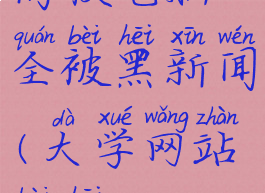 quán bèi hēi xīn wén
全被黑新闻
dà xué wǎng zhàn
(大学网站